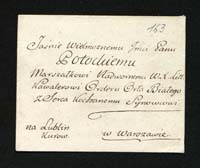 163
Jaśnie Wielmożnemu Jmci Panu
Potockiemu
Marszałkowi Nadwornemu W. X. Litt:
Kawalerowi Orderu Orła Białego
z Serca Kochanemu Synowcowi
na Lublin
Kurow.
w Warszawie